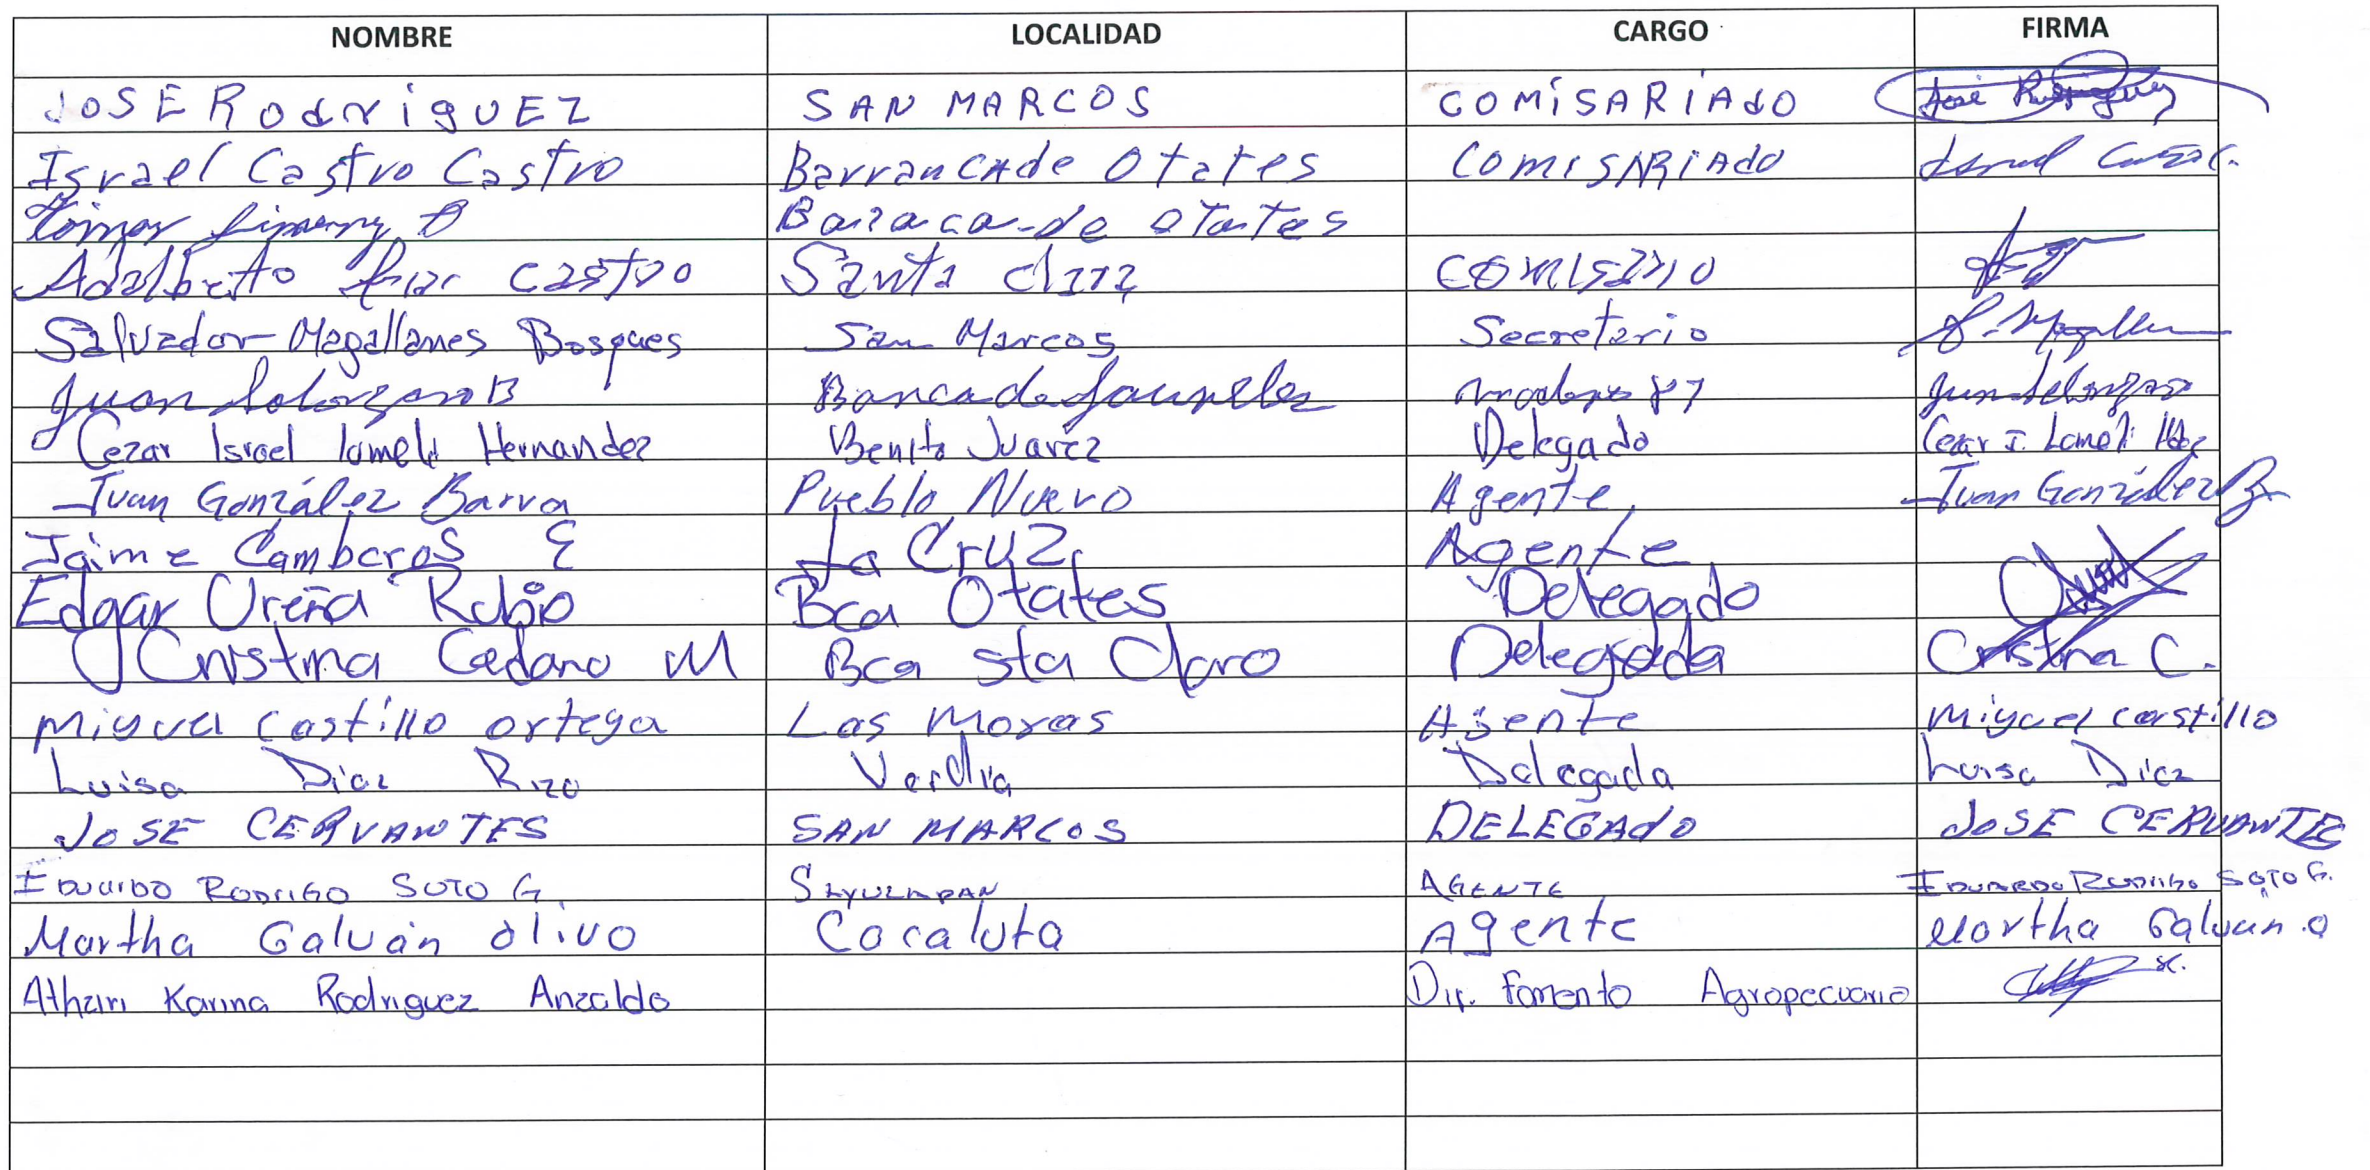 NOMBRE LOCALIDAD CARGO FIRMA
JOSE RodriguEZ SAN MARCOS COMiSARiAdO José Rodriguez
Israel Castro Castro Barrancade Otates COMISARiAdO Israel Castro C.
Baraca-de Otates
Adalberto Castro Santa Clara
Salvador Magallanes Bosques San Marcos Secretario S. Magallanes
Juan Solorzano B Juan Solorzano
Cezar Israel lomeli Hernandez Benito Juarez Delegado Cezar I. Lomeli Hdez
Juan González Barva Pueblo Nuevo Agente Juan González B
Jaime Camberos E La Cruz Agente
Edgar Ureña Rubio Bca Otates Delegado
Cristina Cedano M Bca sta Clara Delegada Cristina C.
Miguel Castillo ortega Las Moras Agente Miguel castillo
Luisa Diaz Rizo Verdia Delegada Luisa Diaz
JOSE CERVANTES SAN MARCOS DELEGAdO JOSE CERVANTES
EDUARDO RODRIGO SOTO G. SAYULAPAN AGENTE EDUARDO RODRIGO SOTO G.
Martha Galván olivo Cocaluta Agente Martha Galvan.O
Athziri Karina Rodriguez Anzaldo Dir. Fomento Agropecuario